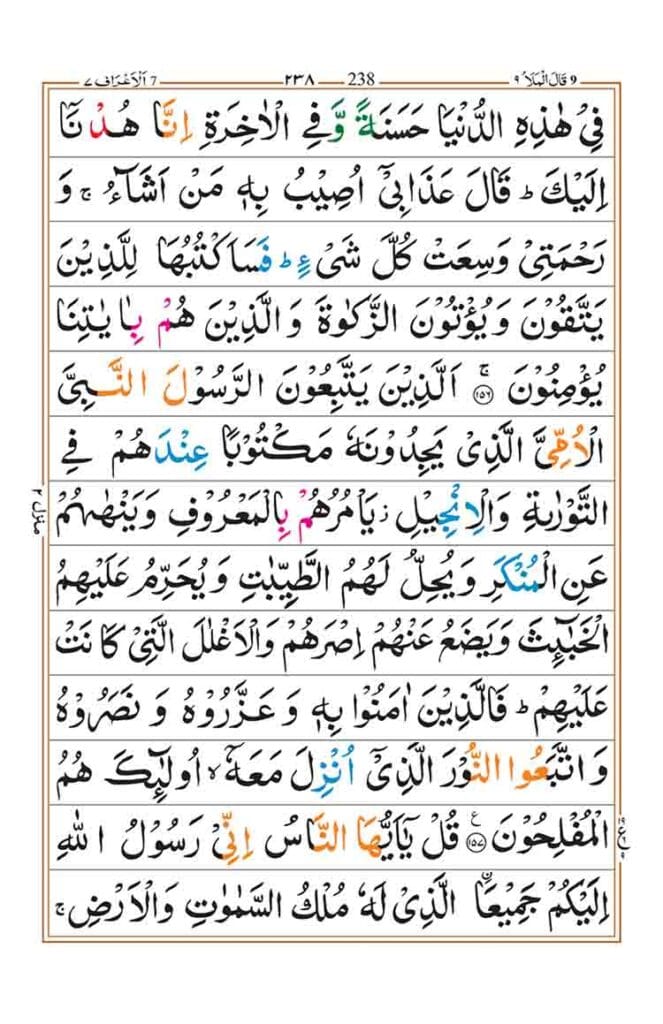 9 قَالَ الْمَلَاُ ۹ 238 ۲۳۸ 7 اَلْاَعْرَاف ۷
فِیْ هٰذِهِ الدُّنْیَا حَسَنَةً وَّفِی الْاٰخِرَةِ اِنَّا هُدْنَاۤ
اِلَیْكَ ؕ قَالَ عَذَابِیْۤ اُصِیْبُ بِهٖ مَنْ اَشَآءُ ۚ وَ
رَحْمَتِیْ وَسِعَتْ كُلَّ شَیْءٍ ؕ فَسَاَكْتُبُهَا لِلَّذِیْنَ
یَتَّقُوْنَ وَیُؤْتُوْنَ الزَّكٰوةَ وَالَّذِیْنَ هُمْ بِاٰیٰتِنَا
یُؤْمِنُوْنَ ۚ ﴿۱۵۶﴾ اَلَّذِیْنَ یَتَّبِعُوْنَ الرَّسُوْلَ النَّبِیَّ
الْاُمِّیَّ الَّذِیْ یَجِدُوْنَهٗ مَكْتُوْبًا عِنْدَهُمْ فِی
التَّوْرٰىةِ وَالْاِنْجِیْلِ ؗ یَاْمُرُهُمْ بِالْمَعْرُوْفِ وَیَنْهٰىهُمْ
منزل ۲
عَنِ الْمُنْكَرِ وَیُحِلُّ لَهُمُ الطَّیِّبٰتِ وَیُحَرِّمُ عَلَیْهِمُ
الْخَبٰٓىِٕثَ وَیَضَعُ عَنْهُمْ اِصْرَهُمْ وَالْاَغْلٰلَ الَّتِیْ كَانَتْ
عَلَیْهِمْ ؕ فَالَّذِیْنَ اٰمَنُوْا بِهٖ وَعَزَّرُوْهُ وَنَصَرُوْهُ
وَاتَّبَعُوا النُّوْرَ الَّذِیْۤ اُنْزِلَ مَعَهٗۤ ۙ اُولٰٓىِٕكَ هُمُ
الْمُفْلِحُوْنَ ﴿۱۵۷﴾ ع قُلْ یٰۤاَیُّهَا النَّاسُ اِنِّیْ رَسُوْلُ اللّٰهِ
اِلَیْكُمْ جَمِیْعَاۨ الَّذِیْ لَهٗ مُلْكُ السَّمٰوٰتِ وَالْاَرْضِ ۚ